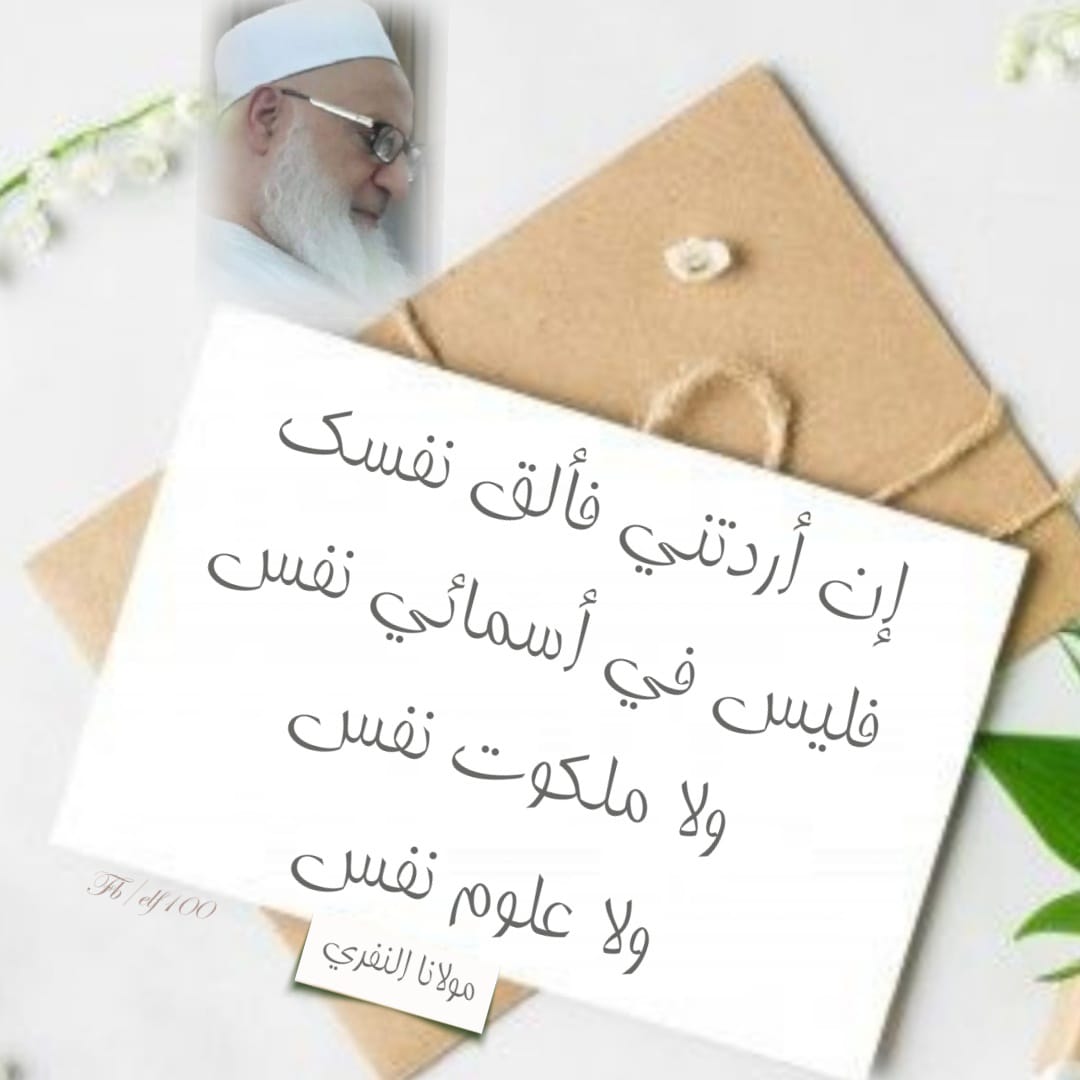 إن أردتني فألق نفسك
فليس في أسمائي نفس
ولا ملكوت نفس
ولا علوم نفس
مولانا النفري
Fb/elf100